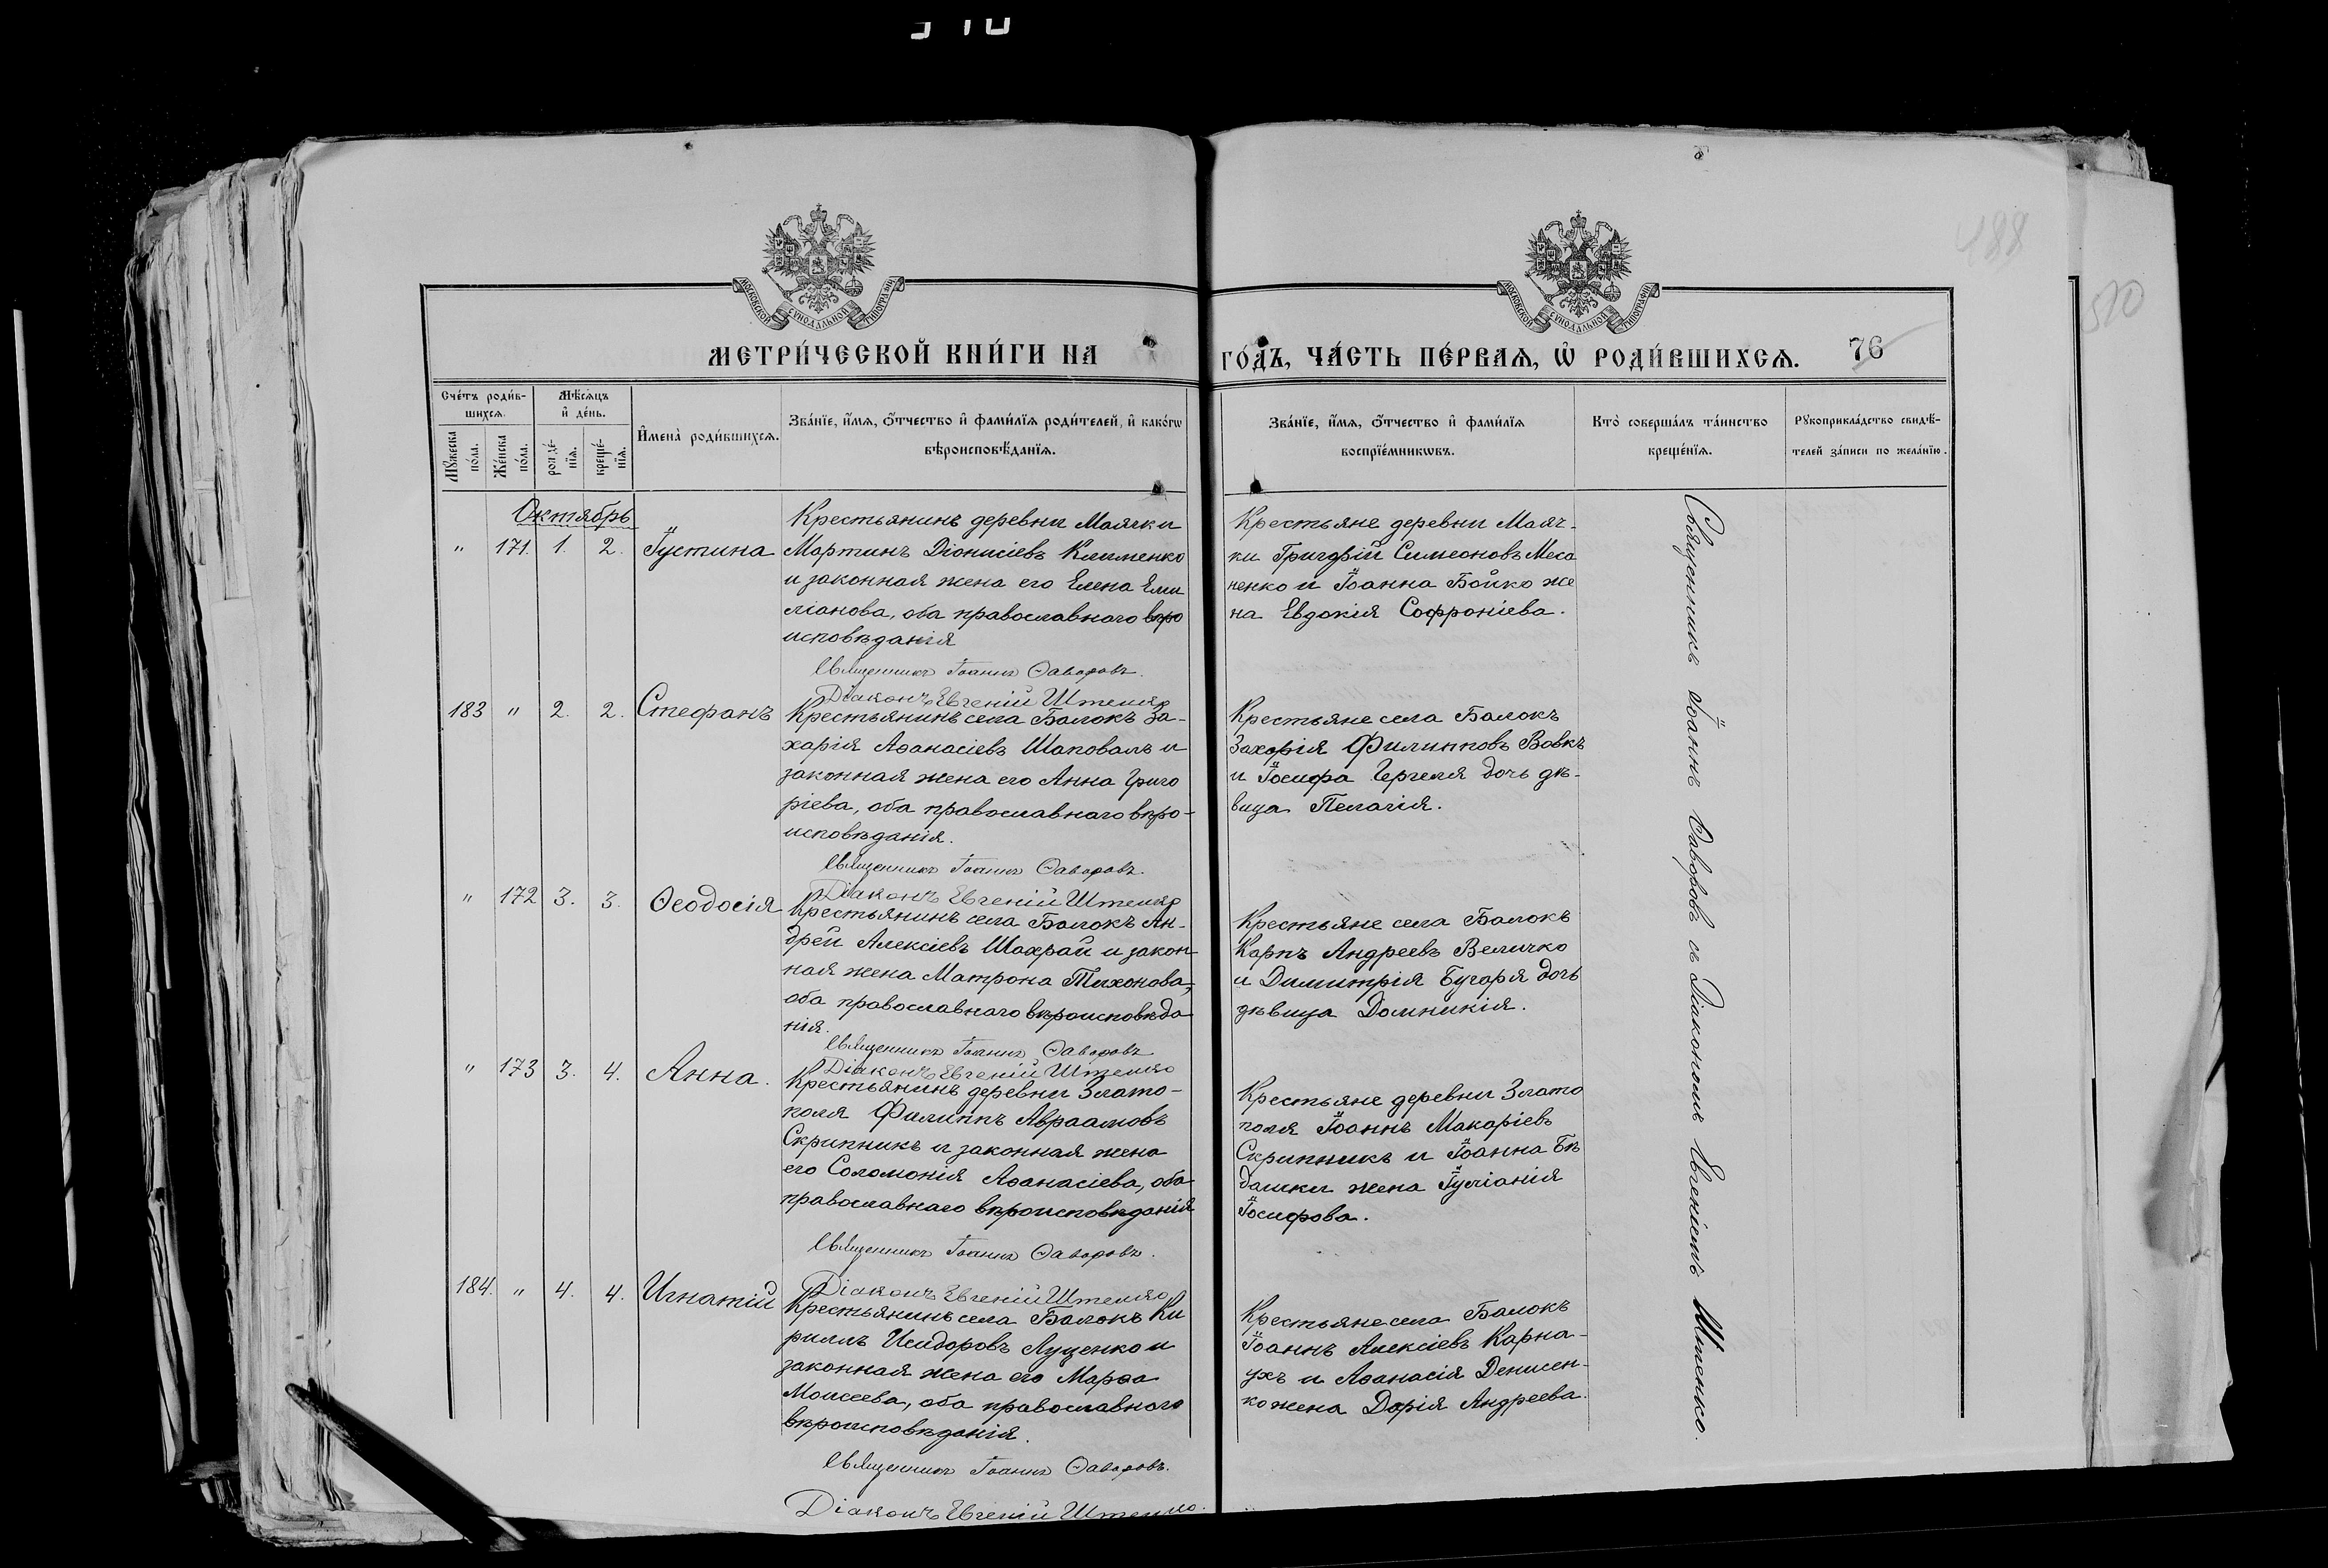 488
510
МОСКОВСКОЙ СѴНОДАЛЬНОЙ ТИПОГРАФІИ
МОСКОВСКОЙ СѴНОДАЛЬНОЙ ТИПОГРАФІИ
МЕТРИ́ЧЕСКОЙ КНИ́ГИ НА ГО́ДЪ, ЧА́СТЬ ПЕ́РВАѦ, Ѡ҆ РОДИ́ВШИХСѦ. 76
Сче́тъ роди́в-
шихсѧ.
Мꙋ́жеска по́ла.
Же́нска по́ла.
Мѣ́сѧцъ
и҆ де́нь.
рожде́-
нїѧ.
креще́-
нїѧ.
И҆мена̀ роди́вшихсѧ.
Зва́нїе, и҆́мѧ, ѻ҆́тчество и҆ фами́лїѧ роди́телей, и҆ како́гѡ
вѣроисповѣ́данїѧ.
Зва́нїе, и҆́мѧ, ѻ҆́тчество и҆ фами́лїѧ
воспрїе́мникѡвъ.
Кто̀ соверша́лъ та́инство
креще́нїѧ.
Рꙋкоприкла́дство свидѣ́-
телей за́писи по жела́нїю.
Октябрь
" 171. 1. 2. Іустина
Крестьянинъ деревни Маячки
Мартинъ Діонисіевъ Клименко
и законная жена его Елена Еми
ліанова, оба православнаго вѣро
исповѣданія
Священникъ Іоаннъ Ѳаворовъ.
Діаконъ Евгеній Штепенко
Крестьяне деревни Маяч-
ки Григорій Симеоновъ Меса
ненко и Іоанна Бойко же
на Евдокія Софроніева.
183 " 2. 2. Стефанъ
Крестьянинъ села Балокъ За-
харія Аѳанасіевъ Шаповалъ и
законная жена его Анна Григо
ріева, оба православнаго вѣро-
исповѣданія.
Священникъ Іоаннъ Ѳаворовъ.
Діаконъ Евгеній Штепенко
Крестьяне села Балокъ
Захарія Филипповъ Вовкъ
и Іосифа Чергеля дочь дѣ-
вица Пелагія.
" 172 3. 3. Ѳеодосія
Крестьянинъ села Балокъ Ан-
дрей Алексіевъ Шахрай и закон
ная жена Матрона Тихонова,
оба православнаго вѣроисповѣда
нія.
Священникъ Іоаннъ Ѳаворовъ
Діаконъ Евгеній Штепенко
Крестьяне села Балокъ
Карпъ Андреевъ Величко
и Димитрія Бугаря дочь
дѣвица Домникія.
" 173 3. 4. Анна.
Крестьянинъ деревни Злато-
поля Филиппъ Авраамовъ
Скрипникъ и законная жена
его Соломонія Аѳанасіева, оба
православнаго вѣроисповѣданія
Священникъ Іоаннъ Ѳаворовъ.
Діаконъ Евгеній Штепенко
Крестьяне деревни Злато
поля Іоаннъ Макаріевъ
Скрипникъ и Іоанна Бѣ
дашки жена Іуліанія
Іосифова.
184. " 4. 4. Игнатій
Крестьянинъ села Балокъ Ки
риллъ Исидоровъ Луценко и
законная жена его Марѳа
Моисеева, оба православнаго
вѣроисповѣданія.
Священникъ Іоаннъ Ѳаворовъ.
Діаконъ Евгеній Штепенко.
Крестьяне села Балокъ
Іоаннъ Алексіевъ Карна-
ухъ и Аѳанасія Денисен-
ко жена Дарія Андреева.
Священникъ Іоаннъ Ѳаворовъ и Діакономъ Евгеніемъ Штепенко.